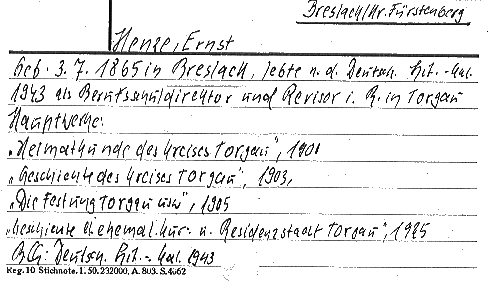 Breslack/Kr. Fürstenberg
Henze, Ernst
Geb. 3. 7. 1865 in Breslack, lebte n. d. Deutsch. Lit.-Kal.
1943 als Berufsschuldirektor und Revisor i. R. in Torgau
Hauptwerke:
„Heimatkunde des Kreises Torgau", 1901
„Geschichte des Kreises Torgau", 1903,
„Die Festung Torgau usw", 1905
„Geschichte d. ehemal. Kur- u. Residenzstadt Torgau", 1925
BQ: Deutsch. Lit.-Kal. 1943
Reg. 10 Stichnote. 1. 50. 232000. A. 803. S. 4662